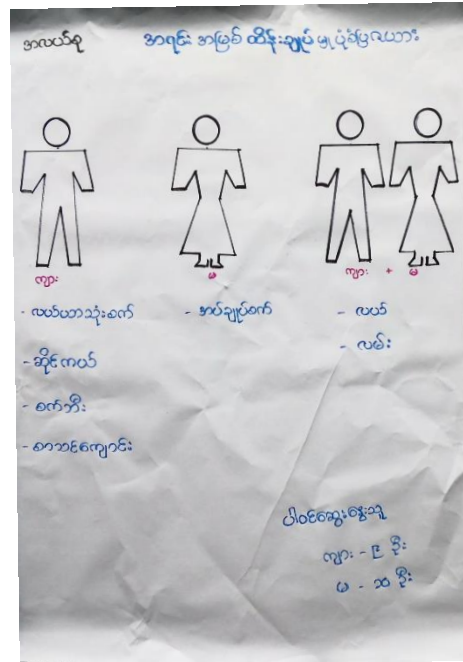 အလယ်စု
အရင်း အမြစ် ထိန်းချုပ် မှု ပုံပြဇယား
ကျား
မ
ကျား + မ
- လယ်ယာသုံးစက်
- ဆိုင်ကယ်
- စက်ဘီး
- စာသင်ကျောင်း
- အပ်ချုပ်စက်
- လယ်
- လမ်း
ပါဝင်ဆွေးနွေးသူ
ကျား - ၉ ဦး
မ - ၁၁ ဦး